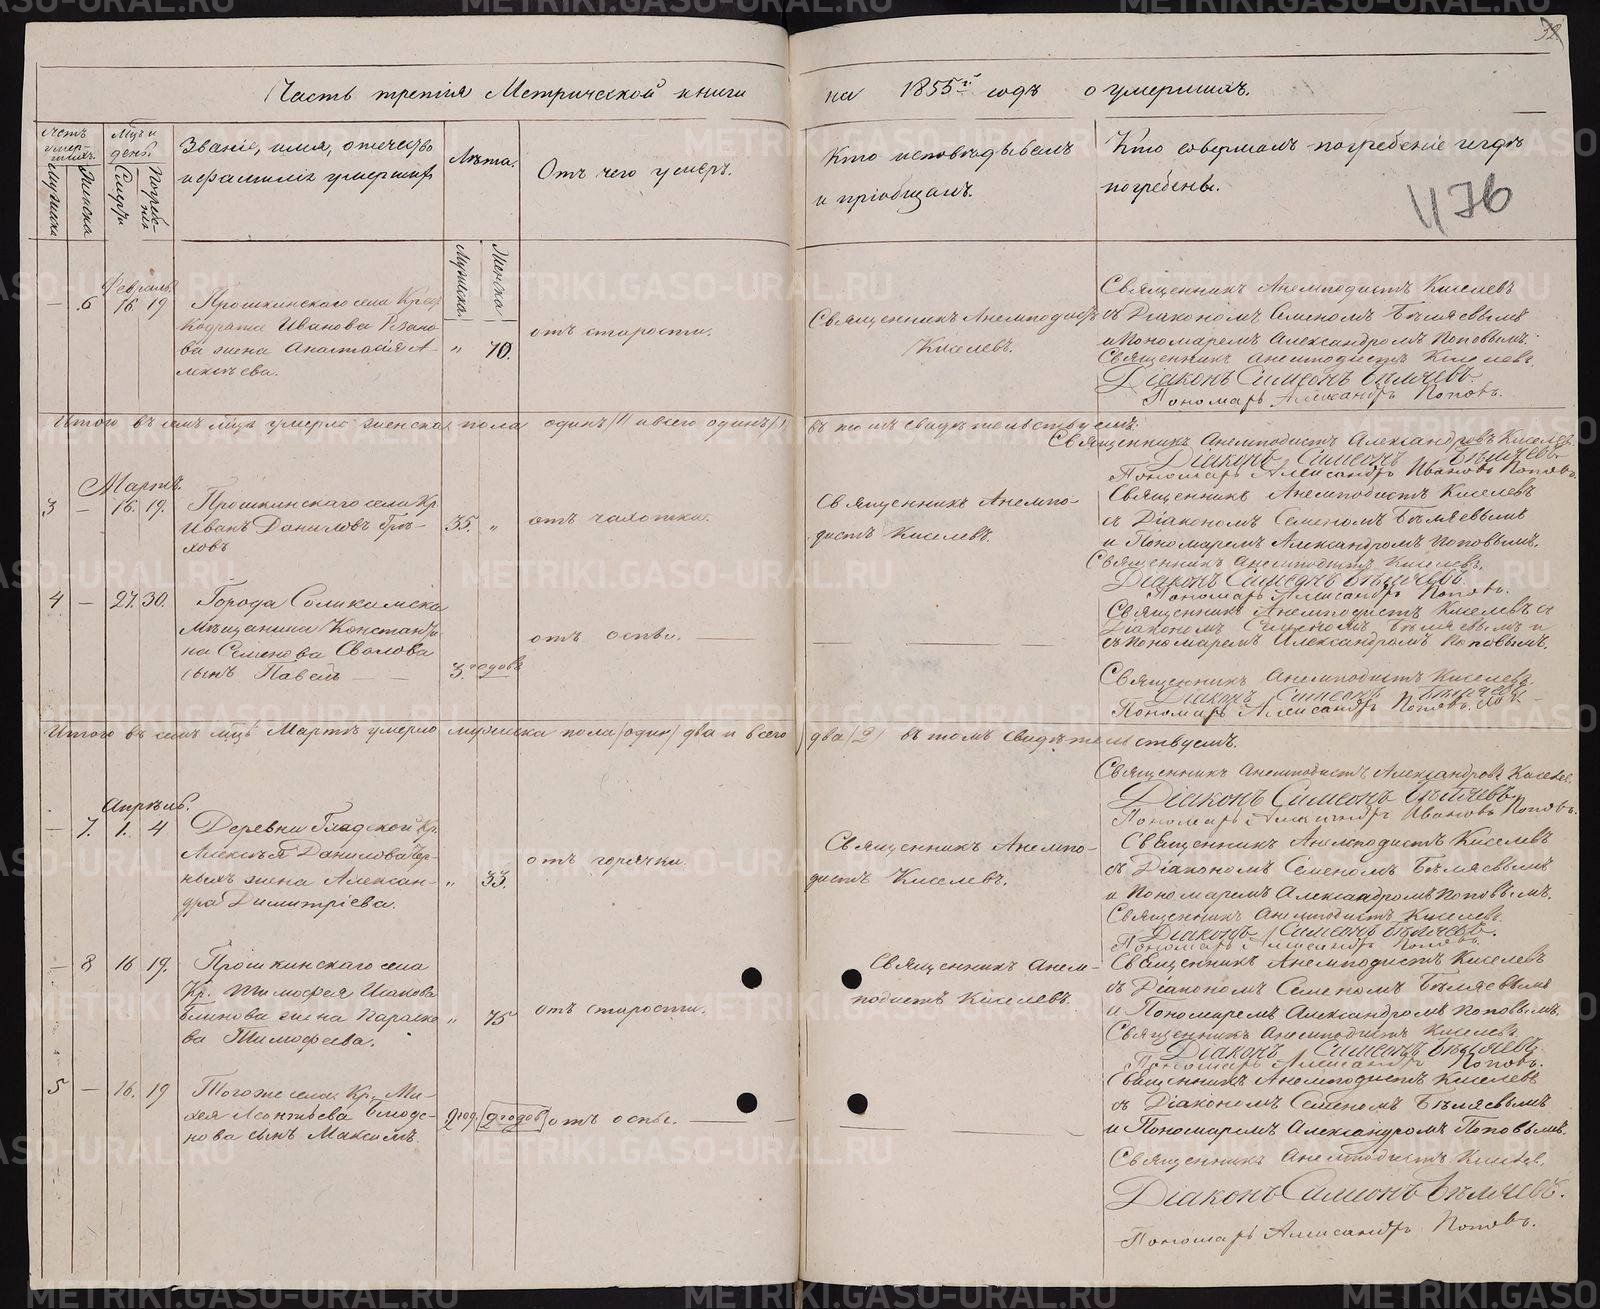 32
Часть третія Метрической книги на 1855й годъ о умершихъ.
Счетъ умершихъ.
Мужска
Женска
Мцъ и день.
Смерти
Погребенія
Званіе, имя, отечество
и фамилія умершихъ
Лѣта.
Мужска.
Женска.
Отъ чего умеръ.
Кто исповѣдывалъ
и пріобщалъ.
Кто совершалъ погребеніе и гдѣ
погребены.
476
Февраль
— 6 16. 19
Прошкинскаго села Крес.
Кодрата Иванова
жена Анастасія А-
лексѣева.
" 70.
отъ старости.
Священникъ Анемподистъ
Киселевъ.
Священникъ Анемподистъ Киселевъ
съ Діакономъ Семеномъ Бѣляевымъ
и Пономаремъ Александромъ Поповымъ.
Священникъ Анемподистъ Киселевъ.
Діаконъ Симеонъ Бѣляевъ.
Пономарь Александръ Поповъ.
Итого въ семъ мцѣ умерло женска пола одинъ /1/ и всего одинъ /1/ въ томъ свидѣтельствуемъ:
Священникъ Анемподистъ Александровъ Киселевъ.
Діаконъ Симеонъ Бѣляевъ
Пономарь Александръ Ивановъ Поповъ.
Мартъ.
3 — 16. 19.
Прошкинскаго села Кр.
Иванъ Даниловъ Грѣ-
ховъ
35. "
отъ чахотки.
Священникъ Анемпо-
дистъ Киселевъ.
Священникъ Анемподистъ Киселевъ
съ Діакономъ Семеномъ Бѣляевымъ
и Пономаремъ Александромъ Поповымъ.
Священникъ Анемподистъ Киселевъ.
Діаконъ Симеонъ Бѣляевъ.
Пономарь Александръ Поповъ.
4 — 27. 30.
Города Соликамска
Мѣщанина Константи-
на Семенова
сынъ Павелъ — —
3. годовъ
отъ оспы.
Священникъ Анемподистъ Киселевъ съ
Діакономъ Семеномъ Бѣляевымъ и
съ Пономаремъ Александромъ Поповымъ.
Священникъ Анемподистъ Киселевъ
Діаконъ Симеонъ Бѣляевъ
Пономарь Александръ Поповъ.
Итого въ семъ мцѣ Мартѣ умерло мужеска пола /одинъ/ два и всего два /2/ въ томъ свидѣтельствуемъ.
Священникъ Анемподистъ Александровъ Киселевъ.
Діаконъ Симеонъ Бѣляевъ
Пономарь Александръ Ивановъ Поповъ.
Апрѣль.
— 7. 1. 4
Деревни Гладской Кр.
Алексѣя Данилова Чер-
ныхъ жена Алексан-
дра Димитріева.
" 33.
отъ горячки.
Священникъ Анемпо-
дистъ Киселевъ.
Священникъ Анемподистъ Киселевъ
съ Діакономъ Семеномъ Бѣляевымъ
и Пономаремъ Александромъ Поповымъ.
Священникъ Анемподистъ Киселевъ.
Діаконъ Симеонъ Бѣляевъ.
Пономарь Александръ Поповъ.
— 8 16 19.
Прошкинскаго села
Кр. Тимофея Исакова
Блинова жена Параско-
ва Тимофеева.
" 75
отъ старости.
Священникъ Анем-
подистъ Киселевъ.
Священникъ Анемподистъ Киселевъ
съ Діакономъ Семеномъ Бѣляевымъ
и Пономаремъ Александромъ Поповымъ.
Священникъ Анемподистъ Киселевъ
Діаконъ Симеонъ Бѣляевъ.
Пономарь Александръ Поповъ.
5 — 16. 19
Тогоже села Кр. Ми-
хея Леонтьева
сынъ Максимъ.
2 год. 2 годовъ
отъ оспы.
Священникъ Анемподистъ Киселевъ
съ Діакономъ Семеномъ Бѣляевымъ
и Пономаремъ Александромъ Поповымъ.
Священникъ Анемподистъ Киселевъ.
Діаконъ Симеонъ Бѣляевъ.
Пономарь Александръ Поповъ.
METRIKI.GASO-URAL.RU